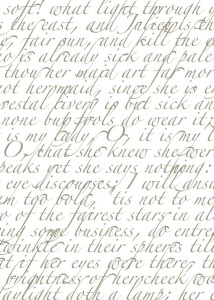 soft! what light through
s the east, and Juliet is th
, fair sun, and kill the
ho is already sick and pale
thou her maid art far mor
not her maid, since she is en
vestal livery is but sick an
none but fools do wear it;
is my lady, O, it is my l
O, that she knew she wer
peaks yet she says nothing:
eye discourses; I will answ
am too bold, 'tis not to me
o of the fairest stars in all
ing some business, do entre
twinkle in their spheres till
at if her eyes were there, th
brightness of her cheek wo
daylight doth a lamp; her